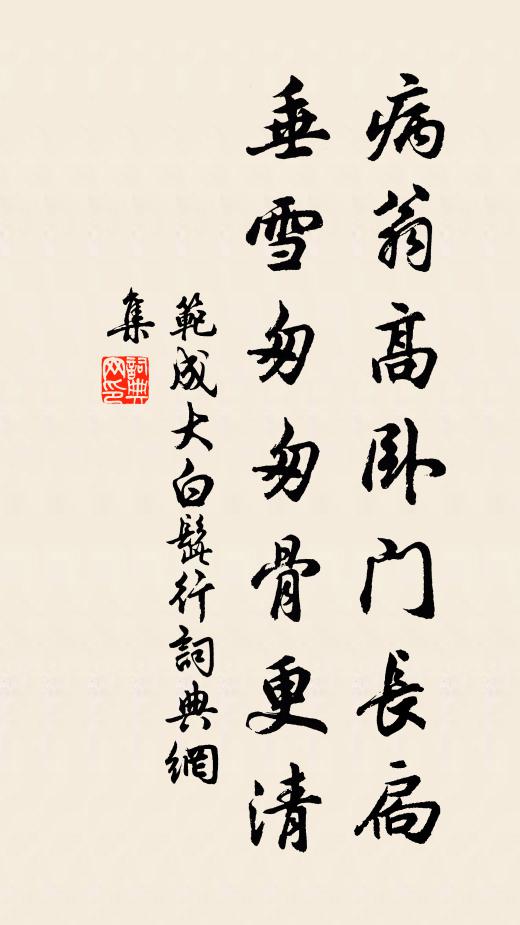 病翁高卧門長扃
垂雪匆匆骨更清
範成大白髭行詞典網
集
詞典網印